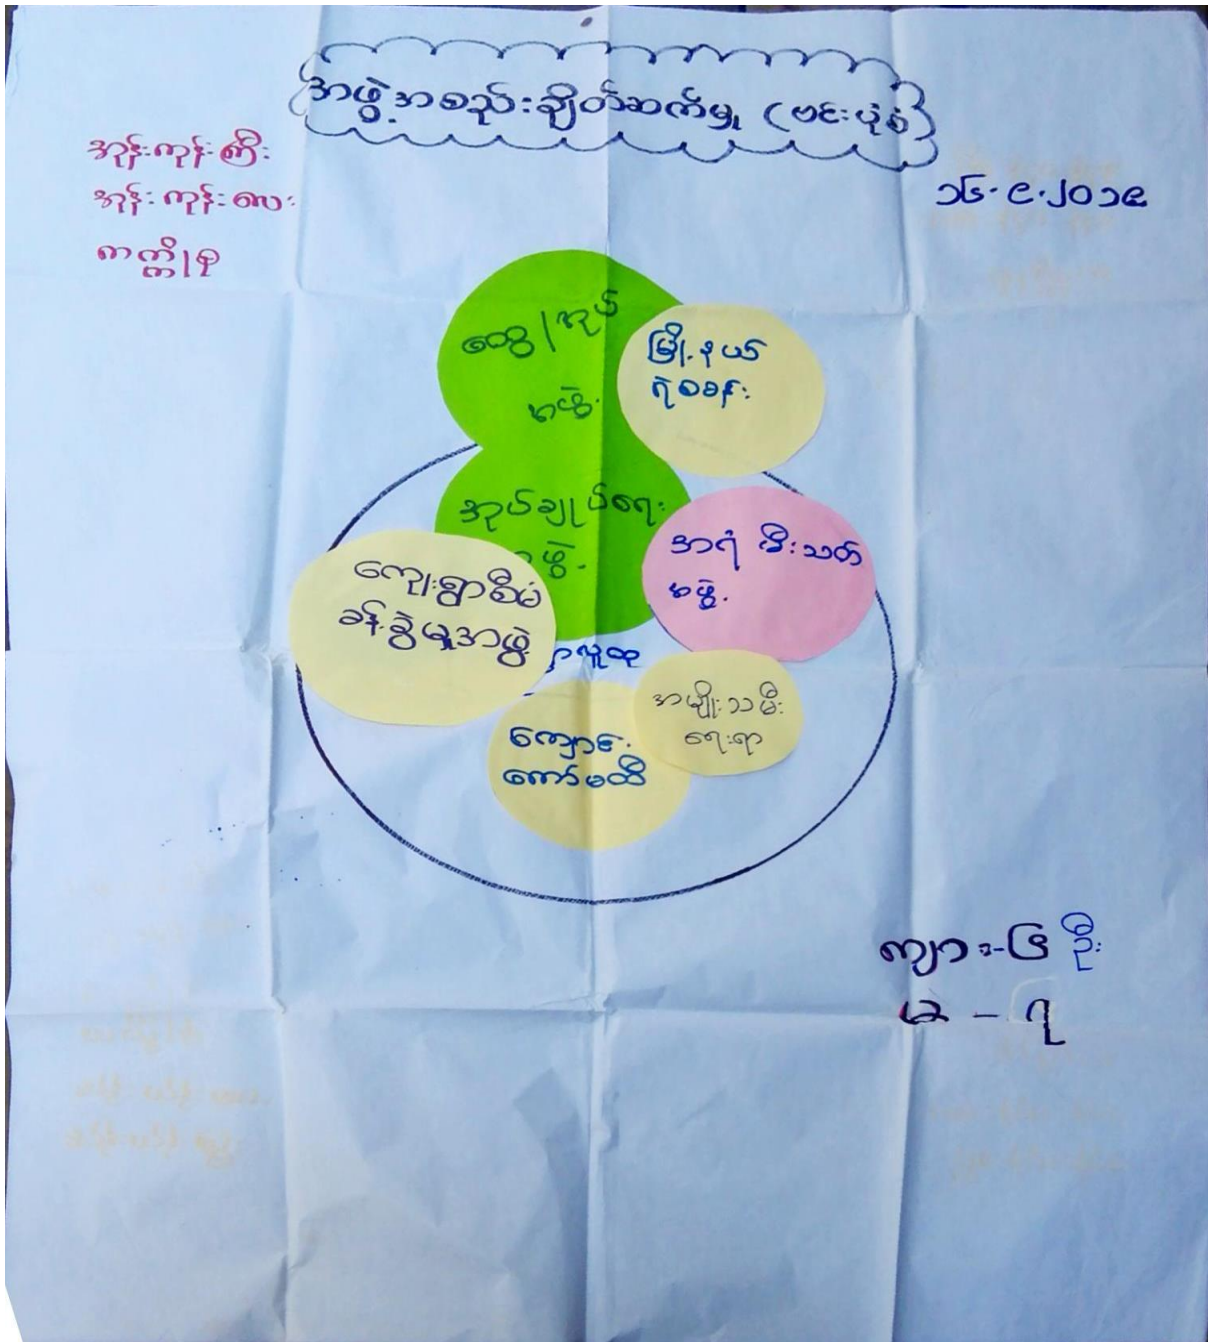 အဖွဲ့အစည်းချိတ်ဆက်မှု (ဗင်းပုံစံ)
အုန်းကုန်းကြီး
အုန်းကုန်းလေး
၁၆.၉.၂၀၁၉
ထွေ/အုပ်
အဖွဲ့
မြို့နယ်
ရဲစခန်း
အုပ်ချုပ်ရေး
ဖွဲ့
အရံ မီးသတ်
အဖွဲ့
ကျေးရွာစီမံ
ခန့်ခွဲမှုအဖွဲ့
လူထု
အမျိုးသမီး
ရေးရာ
ကျောင်း
ကော်မတီ
ကျား-၆ ဦး
မ - ၇